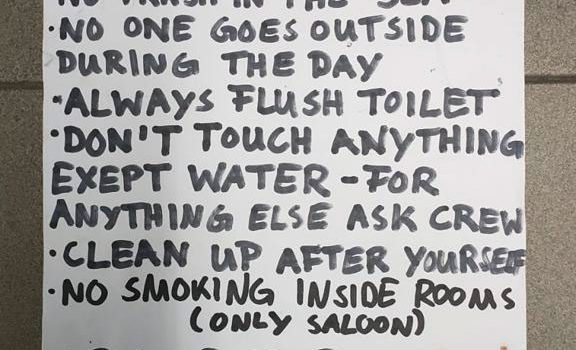 NO TRASH IN THE SEA
·NO ONE GOES OUTSIDE
DURING THE DAY
·ALWAYS FLUSH TOILET
·DON'T TOUCH ANYTHING
EXEPT WATER-FOR
ANYTHING ELSE ASK CREW
·CLEAN UP AFTER YOURSELF
·NO SMOKING INSIDE ROOMS
(ONLY SALOON)